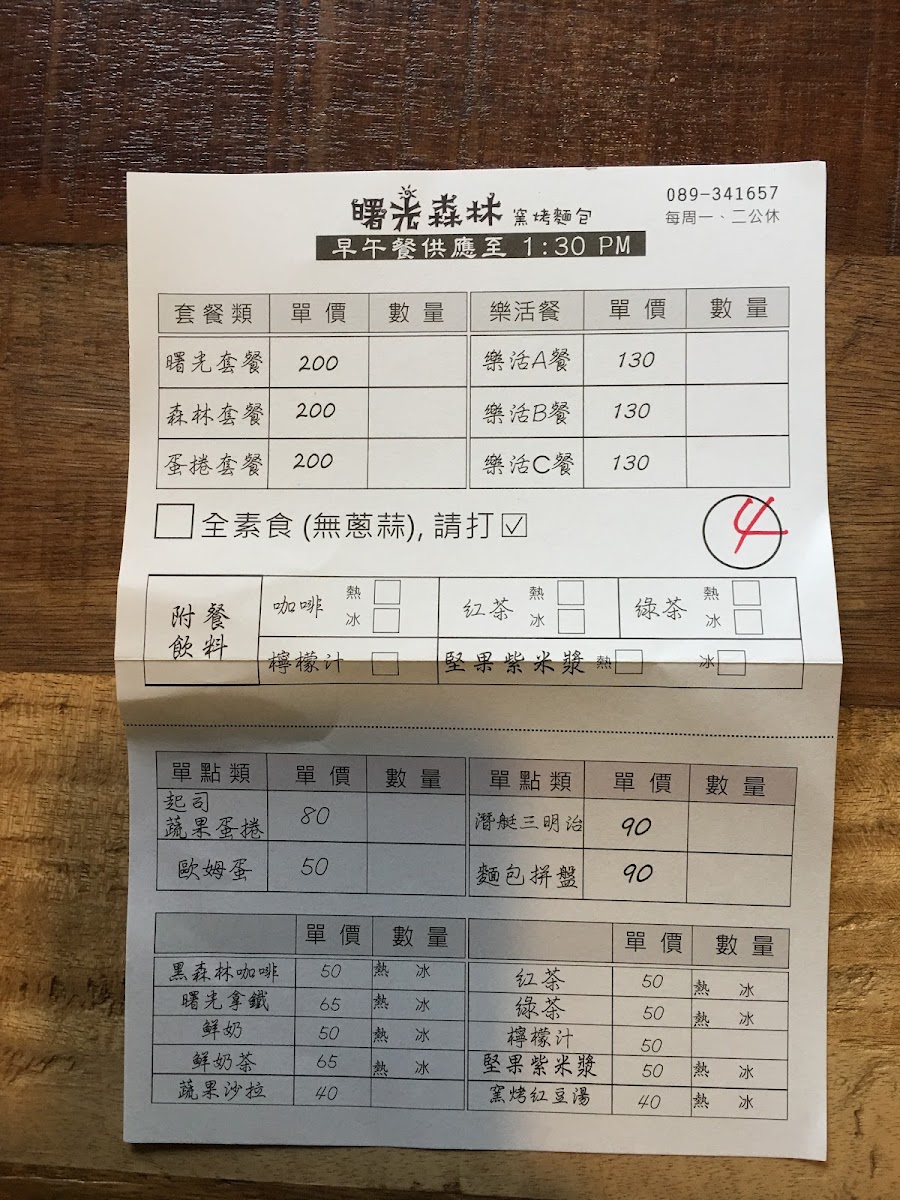 曙光森林 窯烤麵包
089-341657
每周一、二公休
早午餐供應至 1:30 PM
套餐類 單價 數量 樂活餐 單價 數量
曙光套餐 200 樂活A餐 130
森林套餐 200 樂活B餐 130
蛋捲套餐 200 樂活C餐 130
全素食 (無蔥蒜), 請打☑
4
附餐飲料
咖啡 熱 冰 紅茶 熱 冰 綠茶 熱 冰
檸檬汁 堅果紫米漿 熱 冰
單點類 單價 數量 單點類 單價 數量
起司
蔬果蛋捲 80 潛艇三明治 90
歐姆蛋 50 麵包拼盤 90
單價 數量 單價 數量
黑森林咖啡 50 熱 冰 紅茶 50 熱 冰
曙光拿鐵 65 熱 冰 綠茶 50 熱 冰
鮮奶 50 熱 冰 檸檬汁 50
鮮奶茶 65 熱 冰 堅果紫米漿 50 熱 冰
蔬果沙拉 40 窯烤紅豆湯 40 熱 冰